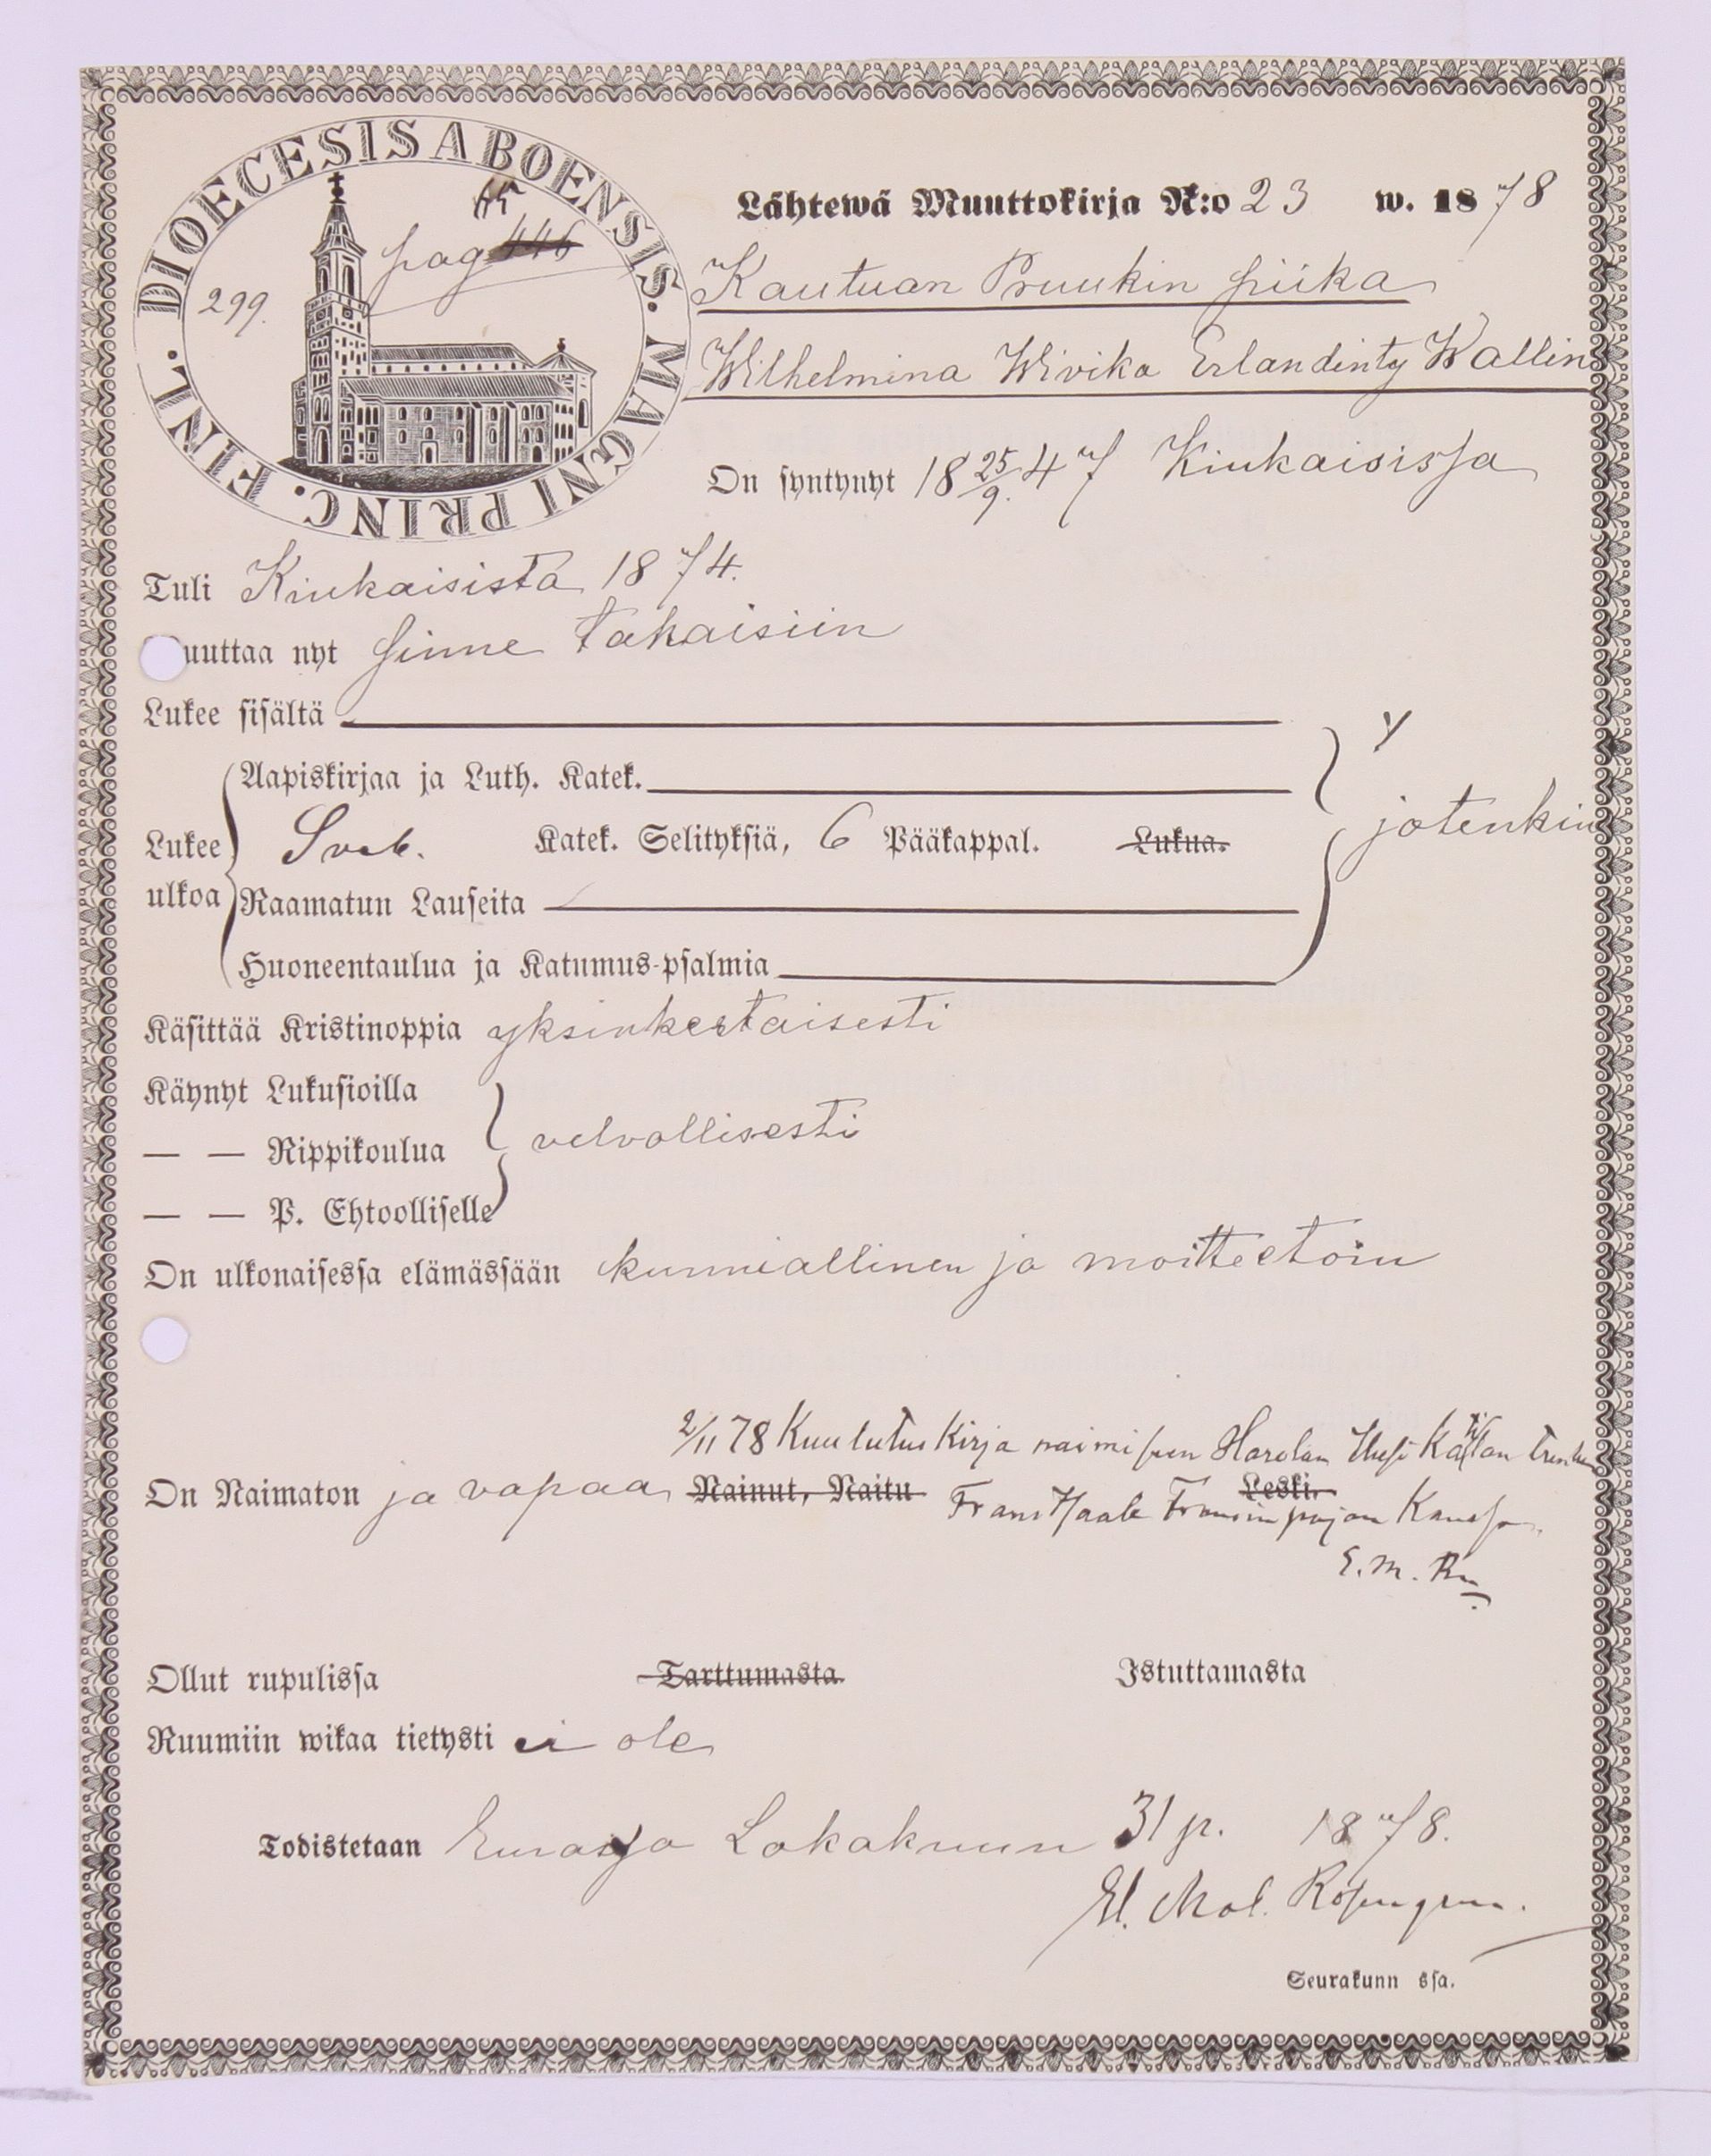 DIOECESIS ABOENSIS. MAGNI PRINC. FINL.
65
pag 446
299.
Lähtewä Muuttokirja N:o 23 w. 1878
Kautuan Pruukin piika
Wilhelmina Wivika Erlandinty Wallin
On syntynyt 18 25/9. 47 Kiukaisissa
Tuli Kiukaisista 1874.
uuttaa nyt sinne takaisiin
Lukee sisältä
Aapiskirjaa ja Luth. Katek.
jotenkin
Lukee ulkoa Sveb. Katek. Selityksiä, 6 Pääkappal. Lukua.
Raamatun Lauseita
Huoneentaulua ja Katumus-psalmia
Käsittää Kristinoppia yksinkertaisesti
Käynyt Lukusioilla
— — Rippikoulua velvollisesti
— — P. Ehtoolliselle
On ulkonaisessa elämässään kunniallinen ja moitteetoin
2/11 78 Kuulutus Kirja naimiseen Harolan Uusi
On Naimaton ja vapaa Nainut, Naitu Leski.
Frans Fransin pojan Kanssa
E. M. Rn
Ollut rupulissa Tarttumasta Istuttamasta
Ruumiin wikaa tietysti ei ole
Todistetaan Eurassa Lokakuun 31 p. 1878.
El. Mol. Rosengren.
Seurakunn ssa.